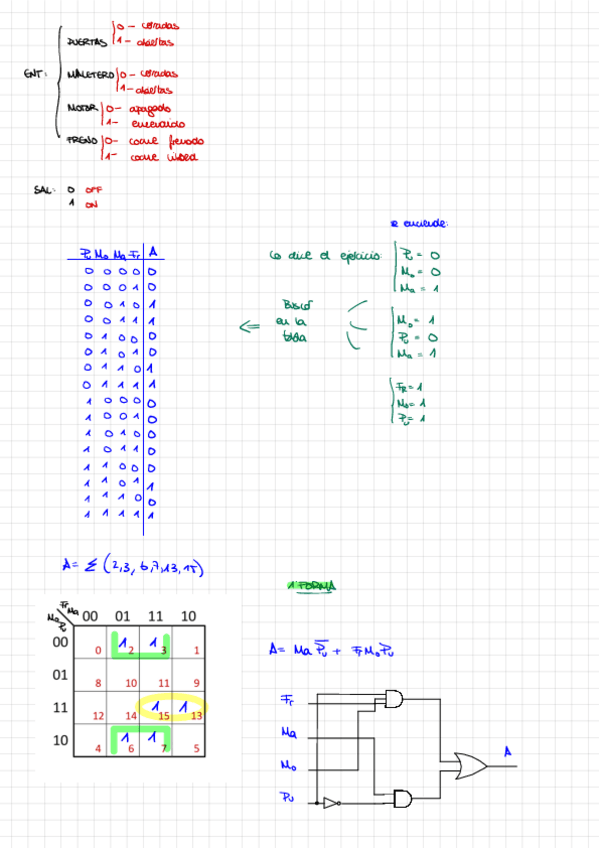 ENT:
PUERTAS
0 - cerradas
1 - abiertas
MALETERO
0 - cerradas
1 - abiertas
MOTOR
0 - apagado
1 - encendido
FRENO
0 - coche frenado
1 -
SAL: 0 OFF
1 ON
se enciende:
Lo dice el ejercicio:
Pu = 0
Mo = 0
Ma = 1
Busco en la tabla
<=
Mo = 1
Pu = 0
Ma = 1
Fr = 1
Mo = 1
Pu = 1
Pu Mo Ma Fr A
0 0 0 0 0
0 0 0 1 0
0 0 1 0 1
0 0 1 1 1
0 1 0 0 0
0 1 0 1 0
0 1 1 0 1
0 1 1 1 1
1 0 0 0 0
1 0 0 1 0
1 0 1 0 0
1 0 1 1 0
1 1 0 0 0
1 1 0 1 1
1 1 1 0 0
1 1 1 1 1
A = Σ (2,3, 6,7,13,15)
1ª FORMA
Fr Ma
Mo Pu
00 01 11 10
00 0 1 2 1 3 1
01 8 10 11 9
11 12 14 1 15 1 13
10 4 1 6 1 7 5
A = Ma P̅u + Fr Mo Pu
Fr
Ma
Mo
Pu
A